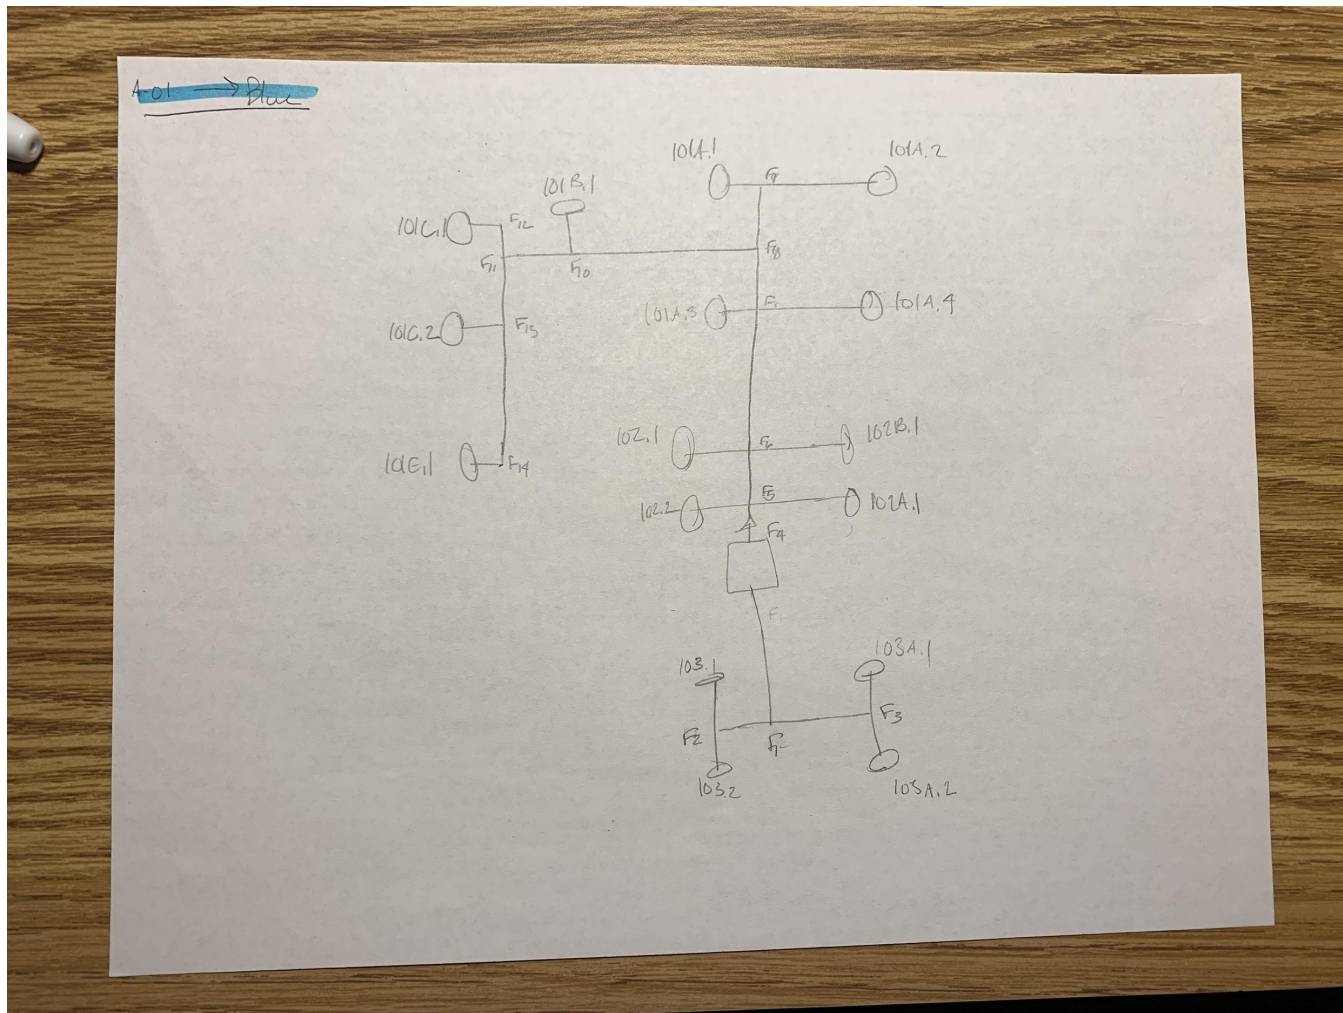 A-01 → Blue
101A.1
101A.2
F9
101B.1
101C.1
F12
F8
F11
F10
101A.3
F7
101A.4
101C.2
F13
102.1
F6
102B.1
101E.1
F14
102.2
F5
102A.1
F4
F1
103.1
103A.1
F2
F3
103.2
103A.2